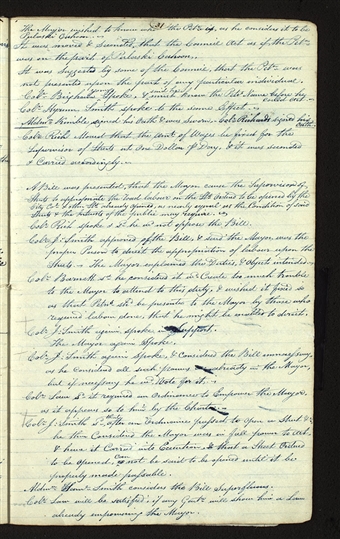 The Mayor wished to know who the Petr is, as he considers it to be
Pulaski Cahoon.
It was moved & seconded, that the Council act as if the Petn
was on the part of Pulaski Cahoon.
It was suggested by some of the Council, that the Petn was
not presented upon the part of any particular individual.
Colr Brigham Spoke, & must know the Petrs Name before he
called out
Colr Hyrum Smith spoke to the same Effect.
Aldn Kimble signed his Oath & was Sworn, Colr Richards signed his
Oath
Colr Rich Moved that the amt of Wages be fixed for the
Supervisor of Streets at One Dollar P Day, & it was seconded
& Carried accordingly.
A Bill was presented, that the Mayor cause the Supervisor of
Streets to appropriate the Road labour in the St ordered to be opened by the
City Col within Sts already opened, as nearly equal as the Condition of said
Streets & the interests of the public may require.
Colr Rich spoke & Sd he wd not oppose the Bill.
Colr J. Smith approved of the Bill, & said the Mayor was the
proper Person to direct the appropriation of labour upon the
Streets. The Mayor explained the Duties, & object intended
Colr Barnett Sd he considered it wd Create too much trouble
to the Mayor to attend to this duty, & wished it fixed so
as that Petns shd be presented to the Mayor by those who
required labour done, that he might be enabled to direct.
Colr J. Smith again spoke
The Mayor again Spoke.
Colr J. Smith again Spoke, & Considered the Bill unnecessary,
as he Considered all such powers already in the Mayor,
but if necessary he wd Vote for it.
Colr Law Sd it required an Ordinance to Empower the Mayor
as it appears so to him by the Charter
Colr J. Smith Sd after an Ordinance passed to open a Street &c
he then Considered the Mayor was in full power to Act,
& have it Carried into Execution, & that a Street Ordered
to be opened, can not be said to be opened until it be
properly made passable.
Aldn Saml Smith considers the Bill Superfluous.
Colr Law will be satisfied, if any Gentn will show him a Law
already empowering the Mayor.